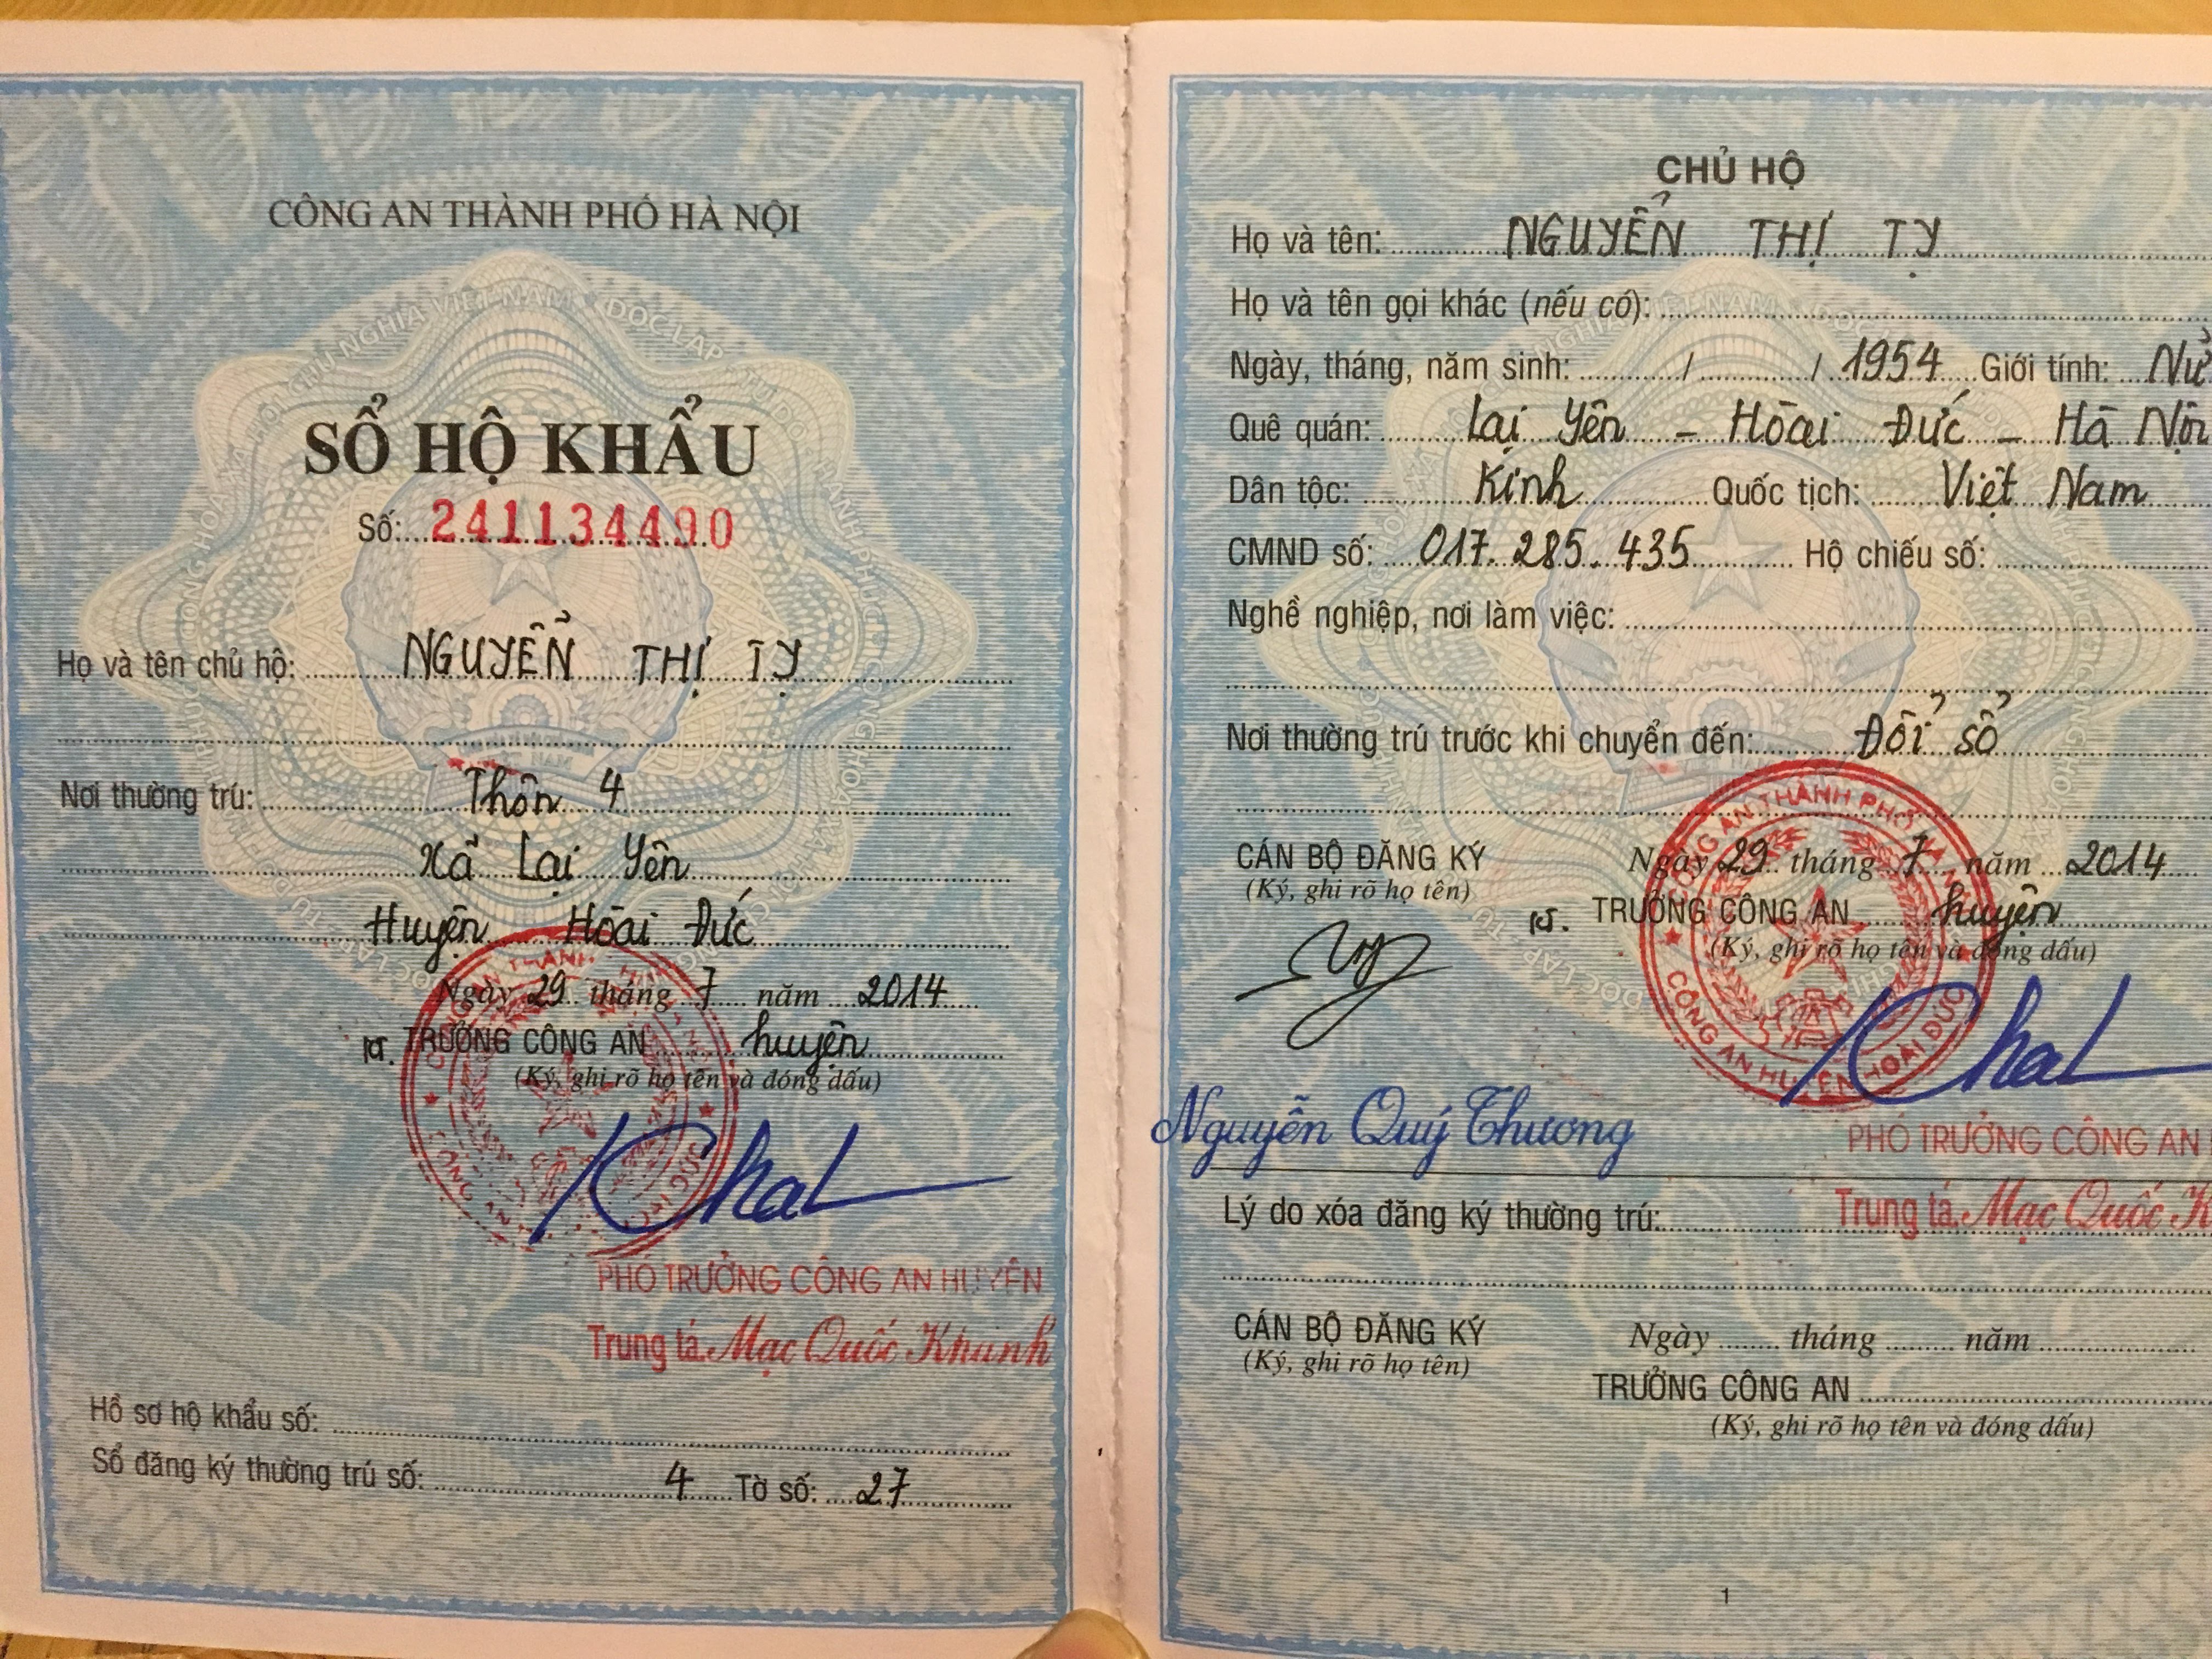 CÔNG AN THÀNH PHỐ HÀ NỘI
SỔ HỘ KHẨU
Số: 241134490
Họ và tên chủ hộ: NGUYỄN THỊ TỴ
Nơi thường trú: Thôn 4
Xã Lại Yên
Huyện Hoài Đức
Ngày 29 tháng 7 năm 2014
KT. TRƯỞNG CÔNG AN huyện
(Ký, ghi rõ họ tên và đóng dấu)
PHÓ TRƯỞNG CÔNG AN HUYỆN
Trung tá. Mạc Quốc Khánh
Hồ sơ hộ khẩu số:
Sổ đăng ký thường trú số: 4 Tờ số: 27
CHỦ HỘ
Họ và tên: NGUYỄN THỊ TỴ
Họ và tên gọi khác (nếu có):
Ngày, tháng, năm sinh: / / 1954 Giới tính: Nữ
Quê quán: Lại Yên - Hoài Đức - Hà Nội
Dân tộc: Kinh Quốc tịch: Việt Nam
CMND số: 017.285.435 Hộ chiếu số:
Nghề nghiệp, nơi làm việc:
Nơi thường trú trước khi chuyển đến: Đổi sổ
CÁN BỘ ĐĂNG KÝ
(Ký, ghi rõ họ tên)
Ngày 29 tháng 7 năm 2014
KT. TRƯỞNG CÔNG AN huyện
(Ký, ghi rõ họ tên và đóng dấu)
CÔNG AN THÀNH PHỐ HÀ NỘI
CÔNG AN HUYỆN HOÀI ĐỨC
Nguyễn Quý Thương
PHÓ TRƯỞNG CÔNG AN
Trung tá. Mạc Quốc K
Lý do xóa đăng ký thường trú:
CÁN BỘ ĐĂNG KÝ
(Ký, ghi rõ họ tên)
Ngày tháng năm
TRƯỞNG CÔNG AN
(Ký, ghi rõ họ tên và đóng dấu)
1